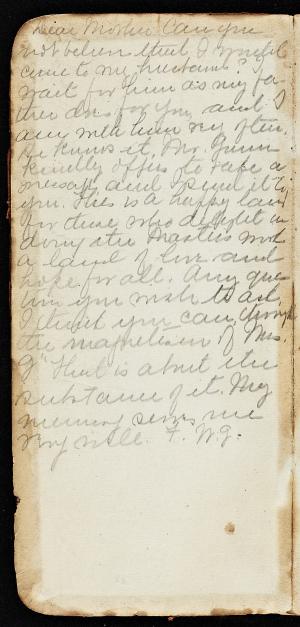 Dear Mother Can you
not believe that I would
come to my husband? I
wait for him as my fa-
ther does for you, and I
am with him very often.
He knows it. Mr.
kindly offers to take a
message and I send it to
you. This is a happy land
for those who delight in
doing the Masters work
a land of love and
hope for all. Any ques-
tion you wish to ask,
I think you can, through
the magnetism of Mrs.
G" That is about the
substance of it. My
memory serves me
very well. F. W. G.